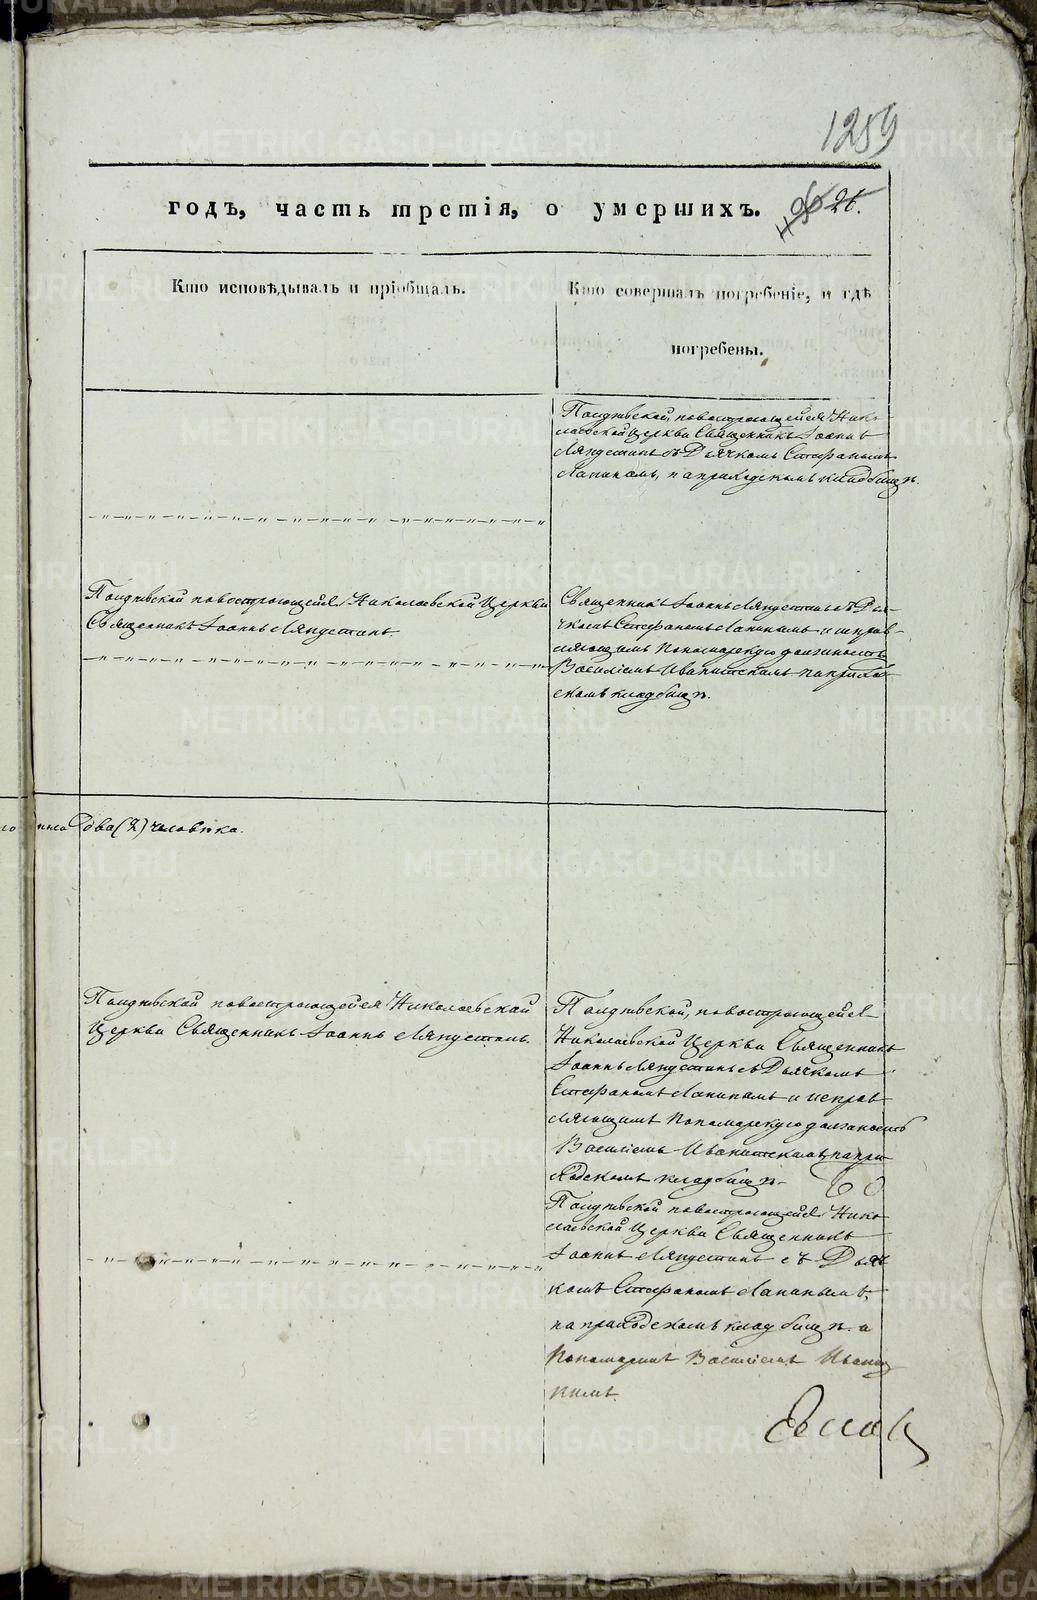 1259
годъ, часть третія, о умершихъ.
26.
Кто исповѣдывалъ и пріобщалъ.
Кто совершалъ погребеніе, и гдѣ
погребены.
новостроющейся Нико-
лаевской Церкви Священникъ Іоаннъ
Ляпустинъ съ Дьячкомъ Стефаномъ
Лапинымъ, на приходскомъ кладбищѣ.
новостроющейся Николаевской Церкви
Священникъ Іоаннъ Ляпустинъ
Священникъ Іоаннъ Ляпустинъ съ Дья-
чкомъ Стефаномъ Лапинымъ и исправ-
ляющимъ Пономарскую должность
Василіемъ на приход-
скомъ кладбищѣ.
два (2) человѣка.
новостроющейся Николаевской
Церкви Священникъ Іоаннъ Ляпустинъ.
новостроющейся
Николаевской Церкви Священникъ
Іоаннъ Ляпустинъ съ Дьячкомъ
Стефаномъ Лапинымъ и исправ-
ляющимъ Пономарскую должность
Василіемъ на при-
ходскомъ кладбищѣ
новостроющейся Нико-
лаевской Церкви Священникъ
Іоаннъ Ляпустинъ съ Дьяч
комъ Стефаномъ Лапинымъ,
на приходскомъ кладбищѣ. и
Пономаремъ Василіемъ
METRIKI.GASO-URAL.RU